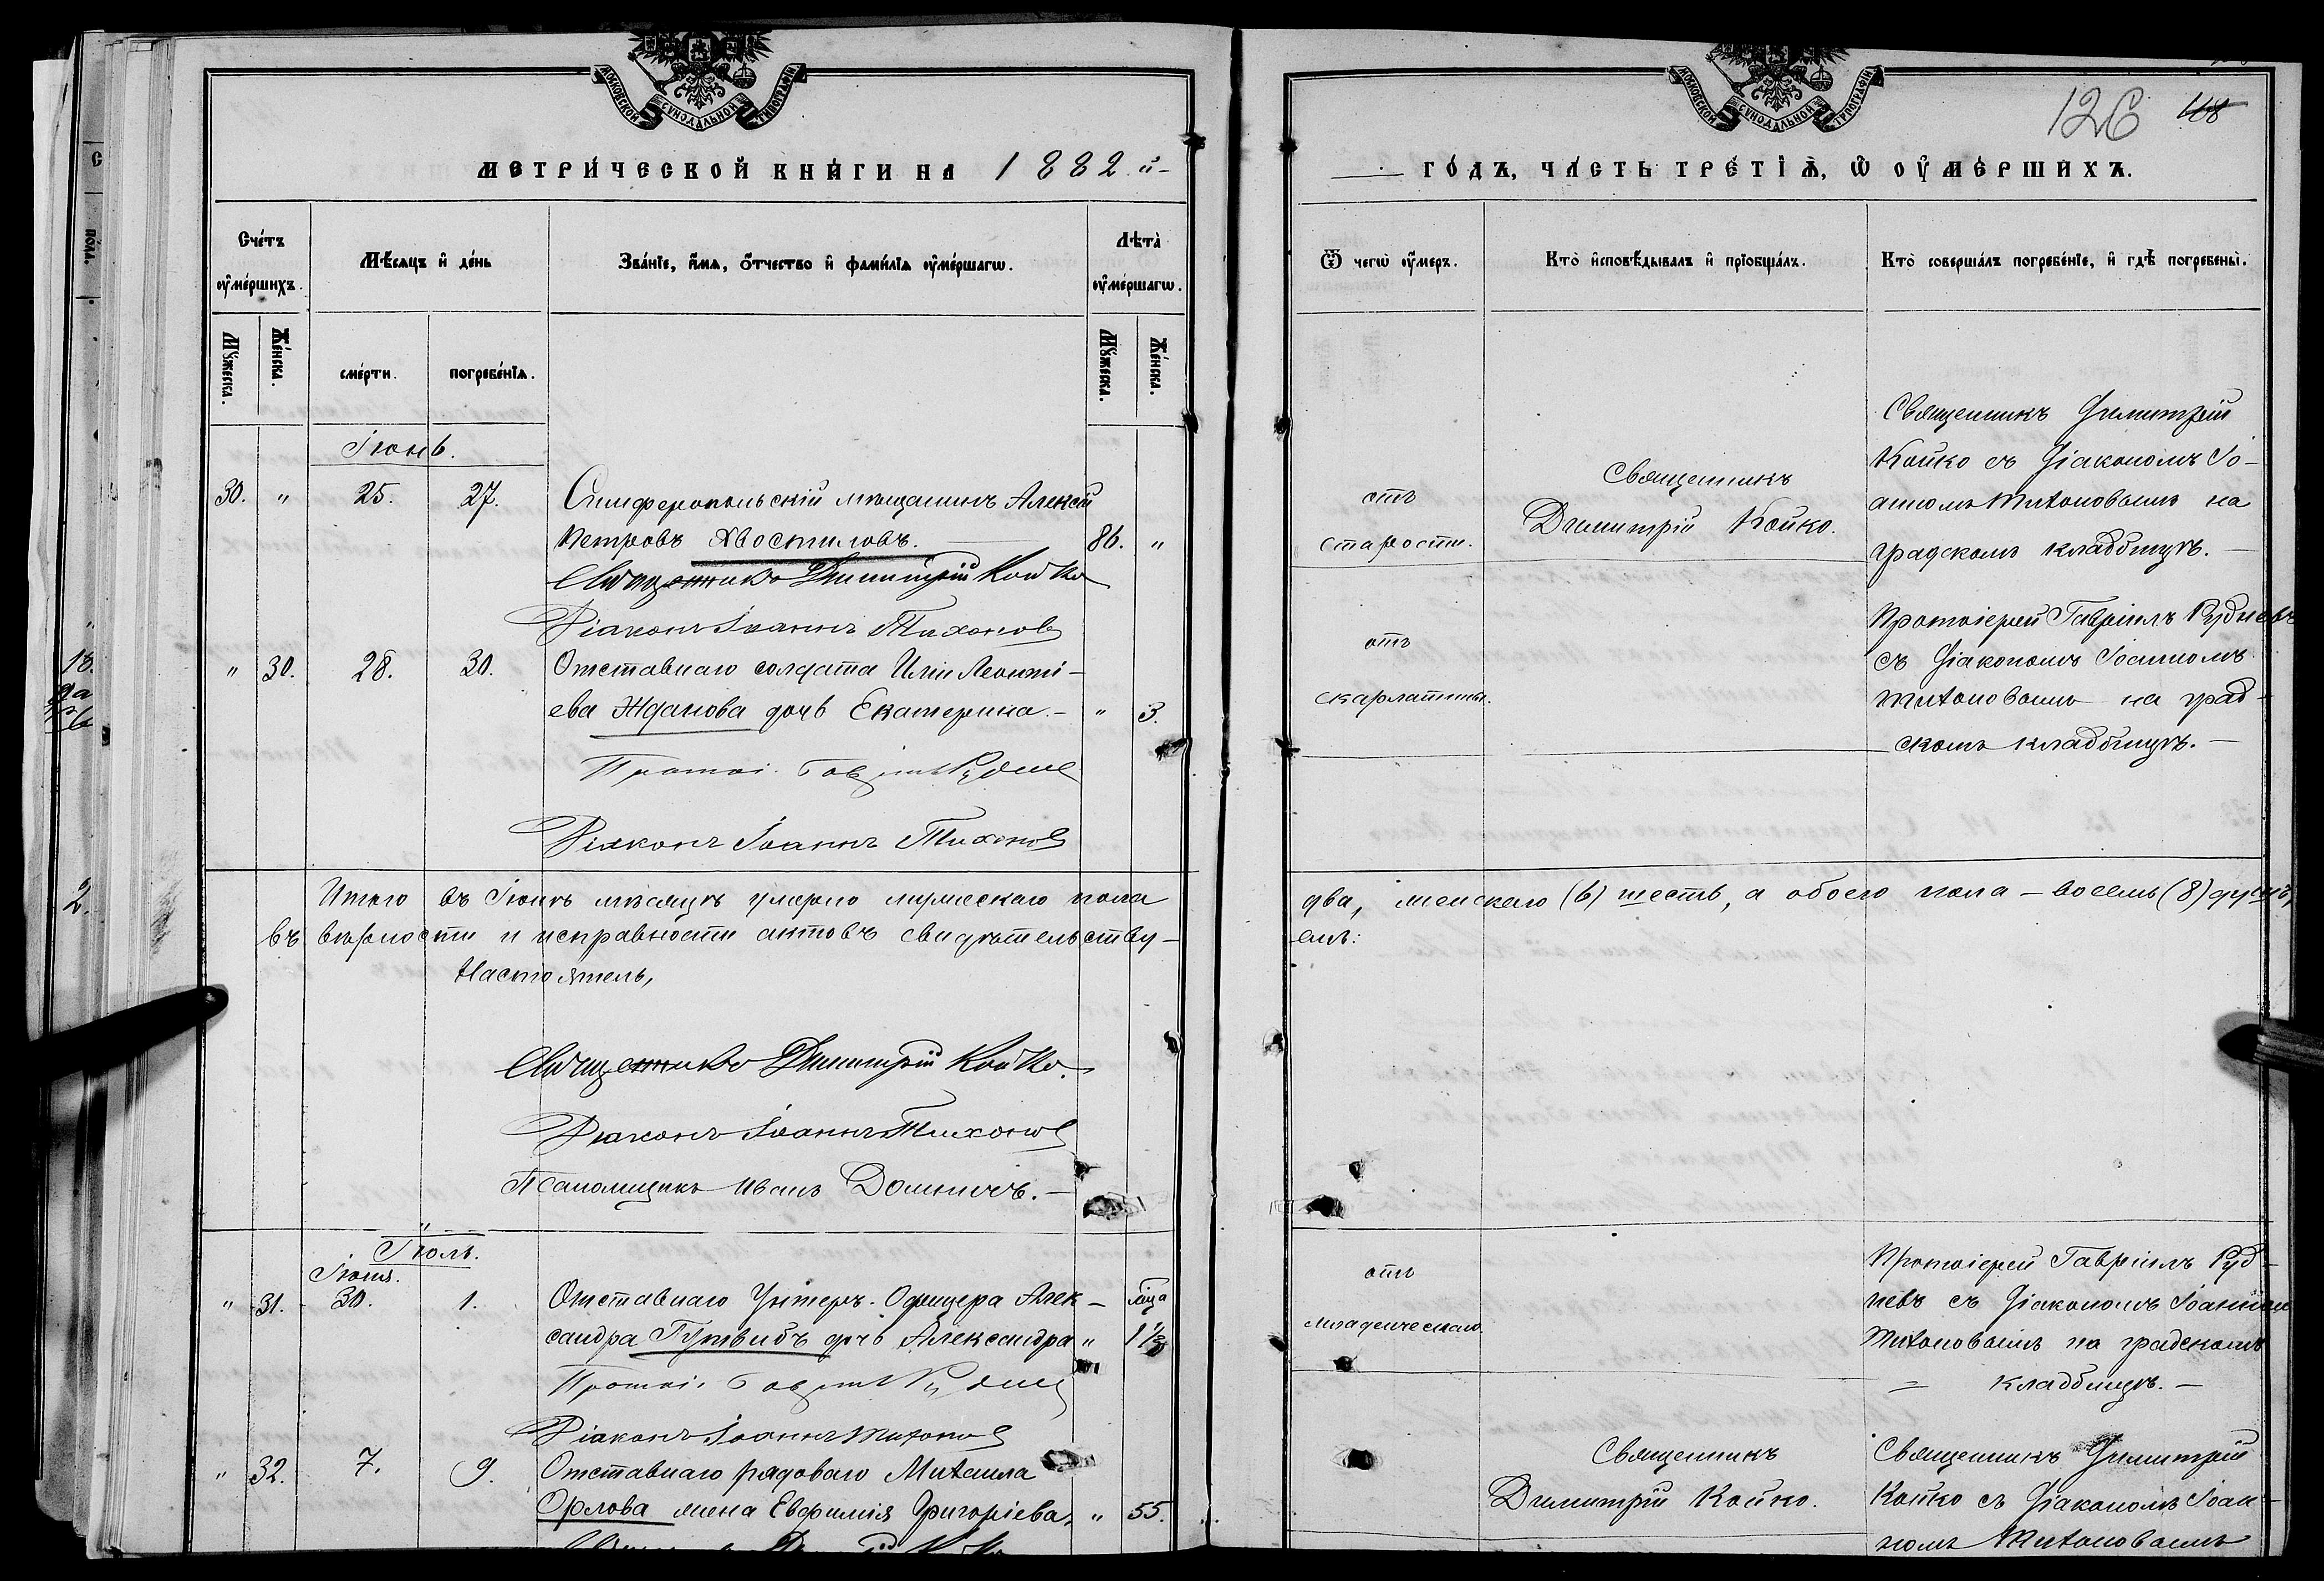 МОСКОВСКОЙ СѴНОДАЛЬНОЙ ТИПОГРАФІИ
МЕТРИ́ЧЕСКОЙ КНИ́ГИ НА 1882 й-
Счéтъ ᲂу҆мéршихъ.
Мѣ́сяцъ и҆ дéнь
Звáнїе, и҆́мѧ, ѻ҆́тчество и҆ фамѝлїѧ ᲂу҆мéршагѡ.
Лѣ́та ᲂу҆мéршагѡ.
Мꙋ́жеска. Жéнска. смéрти. погребéнїѧ. Мꙋ́жеска. Жéнска.
Іюнь.
30. " 25. 27. Симферопольскій мѣщанинъ Алексѣй
Петровъ Хвостиловъ. 86. "
Священникъ Димитрій Койко
Діаконъ Іоаннъ Тихоновъ
" 30. 28. 30. Отставнаго солдата Иліи Леонті-
ева Жданова дочь Екатерина. - " 3.
Протоі. Гавріилъ Рудневъ
Діаконъ Іоаннъ Тихоновъ
Итого въ Іюнѣ мѣсяцѣ умерло мужескаго пола
въ вѣрности и исправности актовъ свидѣтельству-
Настоятель,
Священникъ Димитрій Койко.
Діаконъ Іоаннъ Тихоновъ
Псаломщикъ Иванъ
Іюль.
Іюня.
" 31. 30. 1. Отставнаго Унтеръ-Офицера Алек- мца
сандра Гутвибъ дочь Александра " 1½
Протоі. Гавріилъ Рудневъ
Діаконъ Іоаннъ Тихоновъ
" 32. 7. 9. Отставнаго рядоваго Михаила
Орлова жена Евфимія Григоріева. " 55.
18.
2.
126 118
МОСКОВСКОЙ СѴНОДАЛЬНОЙ ТИПОГРАФІИ
ГО́ДЪ, ЧА́СТЬ ТРЕ́ТІѦ, Ѡ ОУ҆МЕ́РШИХЪ.
Ѿ чегѡ̀ ᲂу҆́меръ.
Ктò и҆сповѣ́дывалъ и҆ прїѡбщáлъ.
Ктò совершáлъ погребéнїе, и҆ гдѣ̀ погребены̀.
отъ
старости.
Священникъ
Димитрій Койко.
Священникъ Димитрій
Койко съ Діакономъ Іо-
анномъ Тихоновымъ на
градскомъ кладбищѣ. -
отъ
скарлатины.
Протоіерей Гавріилъ Рудневъ
съ Діакономъ Іоанномъ
Тихоновымъ на град-
скомъ кладбищѣ. -
два, женскаго (6) шесть, а обоего пола - восемь (8) душъ,
емъ:
отъ
младенческаго.
Протоіерей Гавріилъ Руд-
невъ съ Діакономъ Іоанномъ
Тихоновымъ на градскомъ
кладбищѣ. -
Священникъ
Димитрій Койко.
Священникъ Димитрій
Койко съ Діакономъ Іоан-
номъ Тихоновымъ